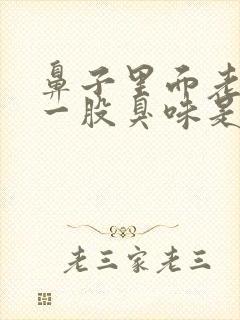 鼻子里而老
一股臭味是
老三家老三